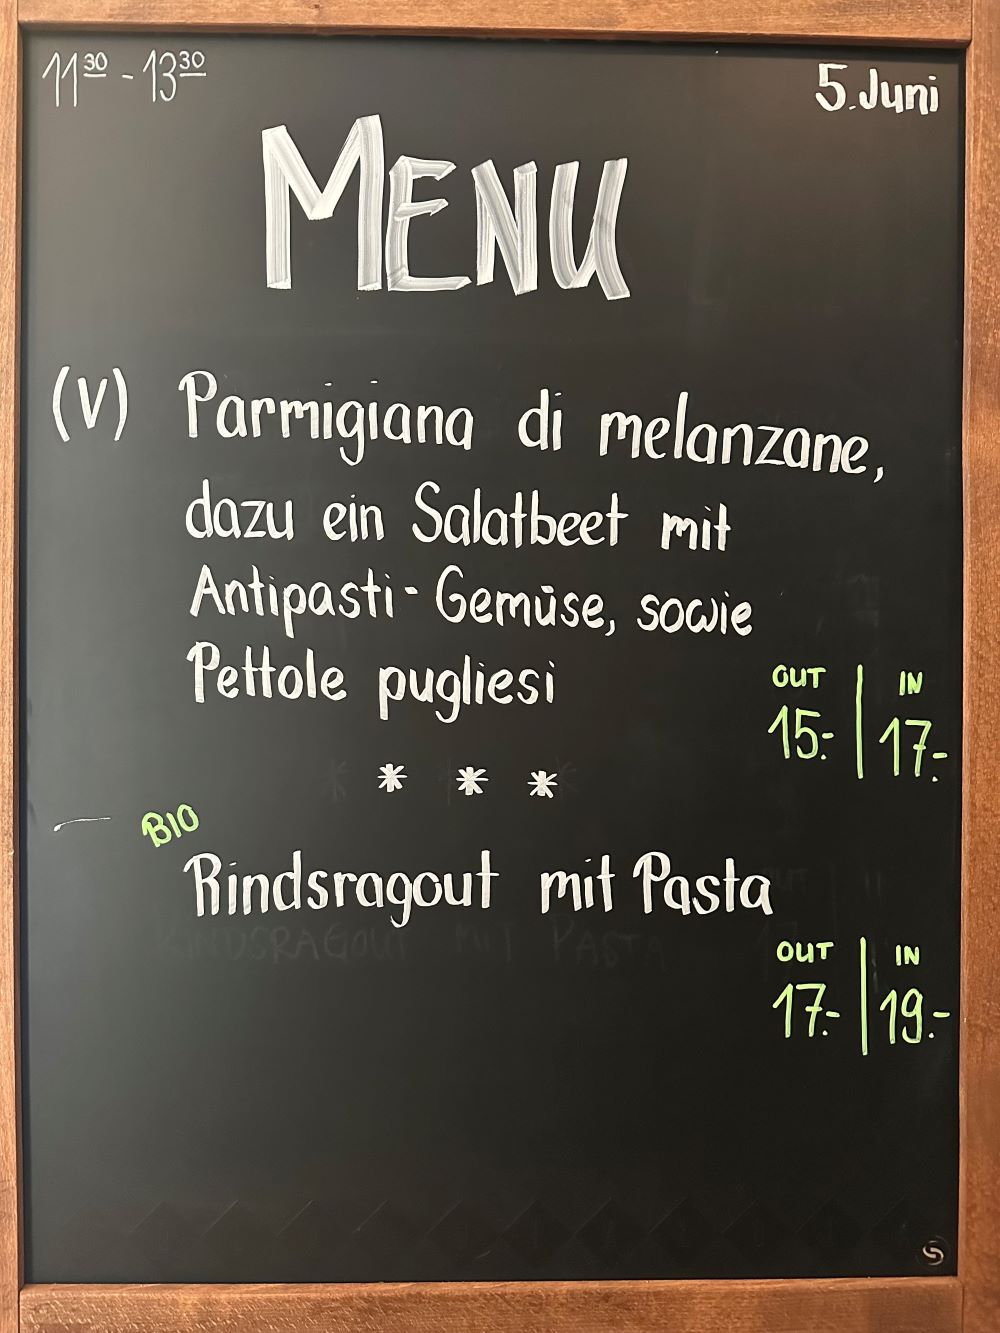 11³⁰ - 13³⁰
5. Juni
MENU
(V) Parmigiana di melanzane,
dazu ein Salatbeet mit
Antipasti-Gemüse, sowie
Pettole pugliesi
OUT | IN
15.- | 17.-
* * *
BIO
Rindsragout mit Pasta
RINDSRAGOUT MIT PASTA
OUT | IN
17.- | 19.-